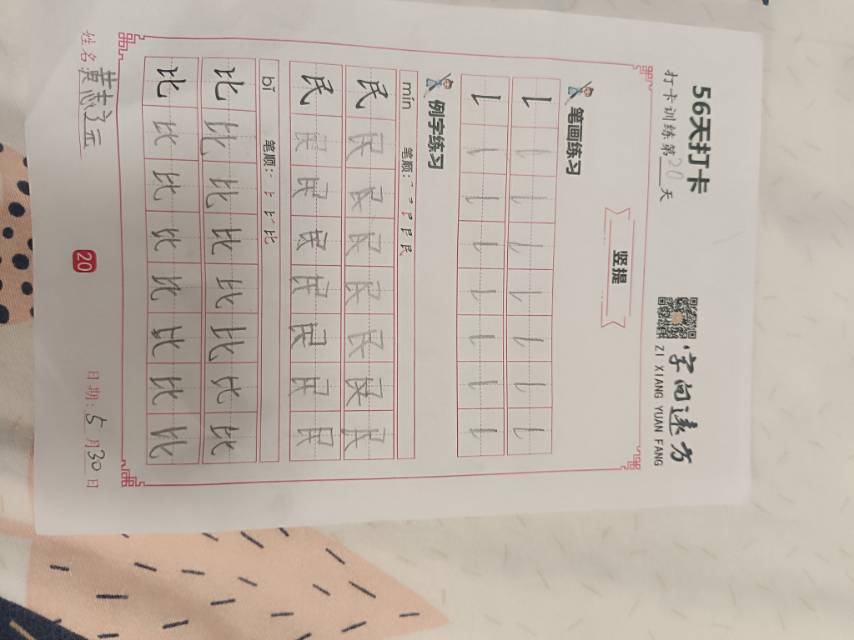 56天打卡
打卡训练第20天
字向远方
ZI XIANG YUAN FANG
竖提
笔画练习
例字练习
mín 笔顺:
民 民 民 民 民 民 民 民
民 民 民 民 民 民 民 民
bǐ 笔顺:
比 比 比 比 比 比 比 比
比 比 比 比 比 比 比 比
姓名:黄志
20
日期:5月30日